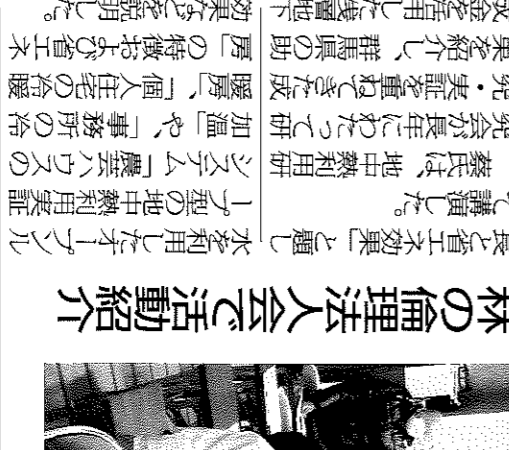 林の倫理法人会で活動紹介
長と省エネ効果」と題し
て講演した。
蔡氏は、地中熱利用研
究会が長年にわたって研
究・実証を重ねてきた成
果を紹介し、群馬県の助
成金を活用した浅層地下
水を利用したオープンル
ープ型の地中熱利用実証
システム「農芸ハウスの
加温」や、「事務所の冷
暖房」、「個人住宅の冷暖
房」の特徴および省エネ
効果などを説明した。